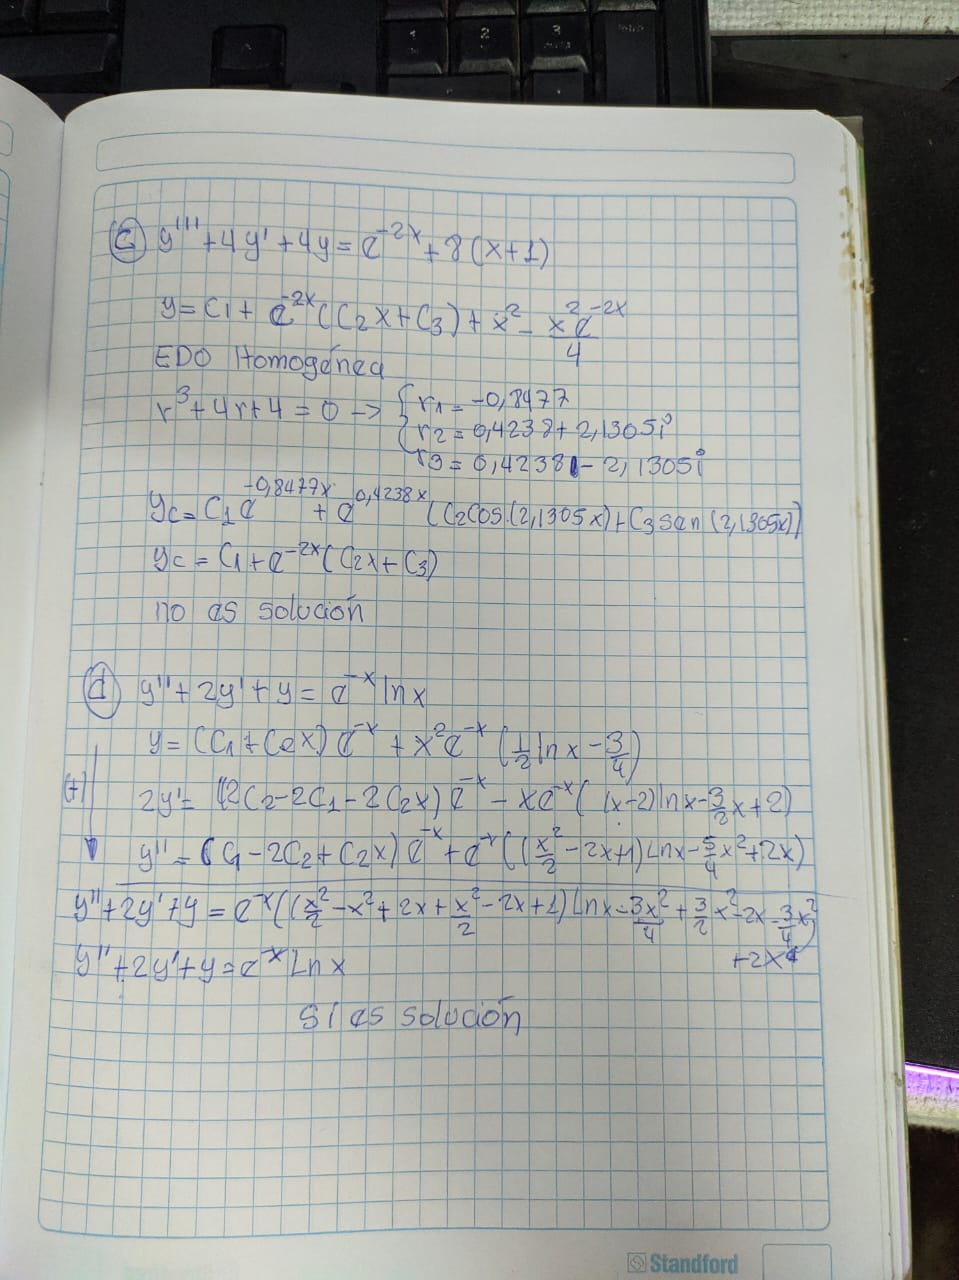 1 2 3
c) y''' + 4y' + 4y = e^{-2x} + 8(x+1)
y = C1 + e^{-2x}(C2x + C3) + x^2 - x^2e^{-2x}/4
EDO Homogénea
r^3 + 4r + 4 = 0 -> { r1 = -0,8477
r2 = 0,4238 + 2,1305i
r3 = 0,4238 - 2,1305i
yc = C1e^{-0,8477x} + e^{0,4238x}(C2Cos(2,1305x) + C3sen(2,1305x))
yc = C1 + e^{-2x}(C2x + C3)
no es solución
d) y'' + 2y' + y = e^{-x} lnx
y = (C1 + C2x) e^{-x} + x^2e^{-x} (1/2 lnx - 3/4)
(+) 2y' = (2C2 - 2C1 - 2C2x) e^{-x} - xe^{-x}((x-2)lnx - 3/2x + 2)
y'' = (C1 - 2C2 + C2x) e^{-x} + e^{-x}((x^2/2 - 2x + 1)Lnx - 5/4x^2 + 2x)
y'' + 2y' + y = e^{-x}((x^2/2 - x^2 + 2x + x^2/2 - 2x + 1)Lnx - 3x^2/4 + 3/2x^2 - 2x - 3/4x^2
+2x)
y'' + 2y' + y = e^{-x} Lnx
SÍ es solución
Standford